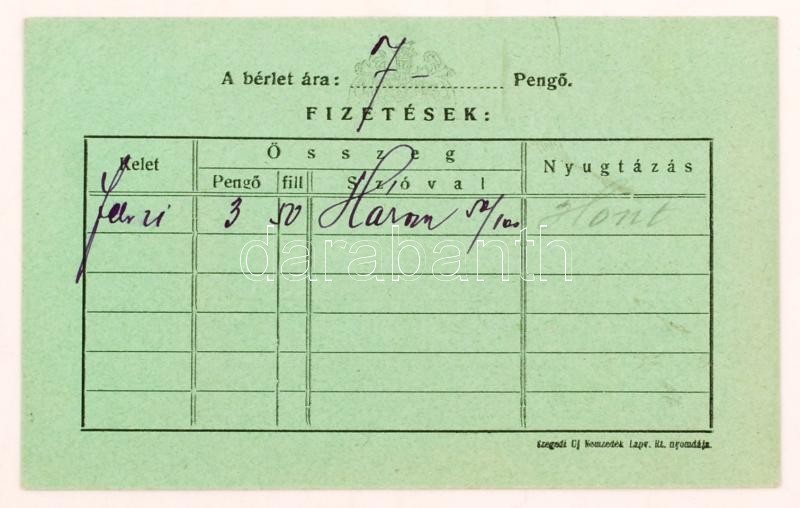 A bérlet ára: 7- Pengő.
FIZETÉSEK:
Kelet Összeg Nyugtázás
Pengő fill Szóval
3 50 Három 50/100 Hont
darabanth
Szegedi Uj Nemzedék Lapv. Rt. nyomdája.